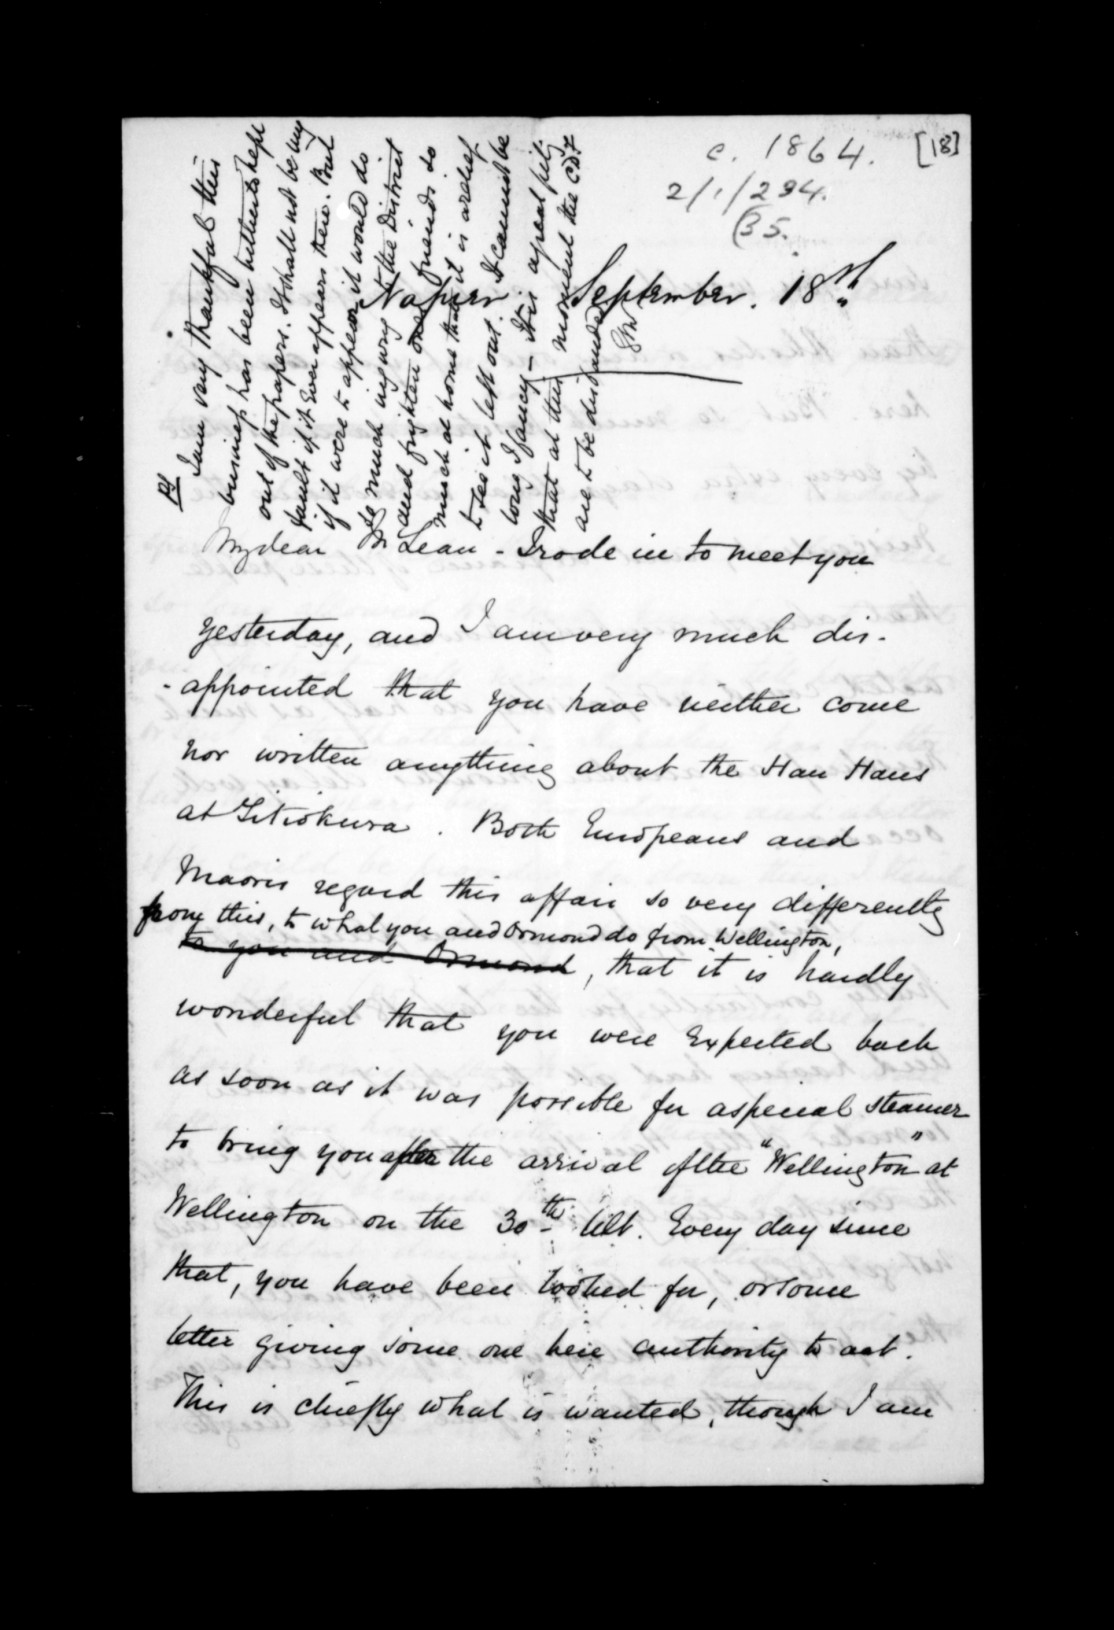 c. 1864. [18]
2/1/294.
(35.
Napier. September. 18th
My dear McLean - I rode in to meet you
yesterday, and I am very much dis-
-appointed that you have neither come
nor written anything about the Hau Haus
at Titiokura. Both Europeans and
Maoris regard this affair so very differently
from this, to what you and Ormond do from Wellington,
to you and Ormond, that it is hardly
wonderful that you were expected back
as soon as it was possible for a special steamer
to bring you after the arrival of the "Wellington" at
Wellington on the 30th ult. Every day since
that, you have been looked for, or some
letter giving some one here authority to act.
This is chiefly what is wanted, though I am
PS
I am very thankful this
business has been hitherto kept
out of the papers. It shall not be my
fault if it ever appears there. But
if it were to appear it would do
so much injury to the District
and frighten our friends so
much at home that it is a relief
to see it left out. It cannot be
long I fancy - It is a great pity
that at this moment the C.D.F.
are to be disbanded